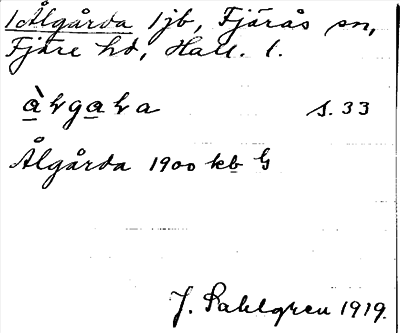 1 Ålgårda 1 jb, Fjärås sn,
Fjäre hd, Hall. l.
s. 33
Ålgårda 1900 kb
J. Sahlgren 1919.